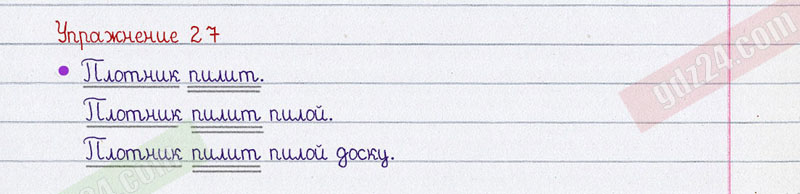 Упражнение 27
• Плотник пилит.
Плотник пилит пилой.
Плотник пилит пилой доску.
gdz24.com
gdz24.com